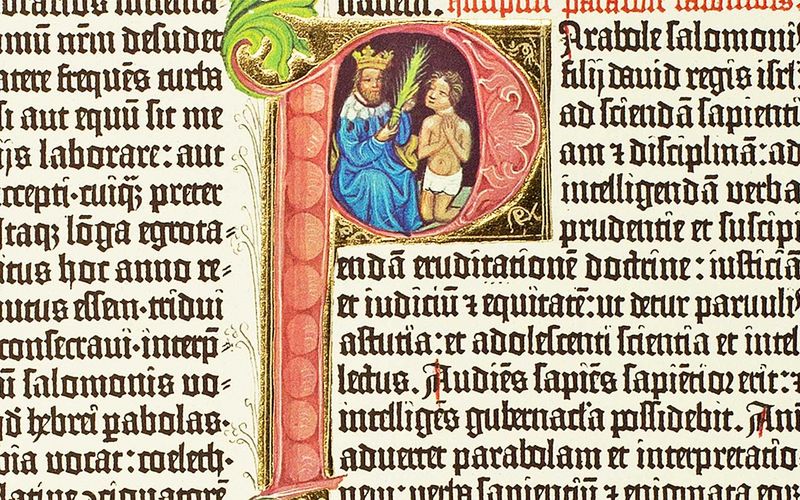 nr̄m desudet
frequēs turba
si aut equū sit me
laborare: aut
cuiqꝫ preter
Itaqꝫ lōga egrota⸗
hoc anno re⸗
essem·tridui
consecraui·interp̄⸗
salomonis vo⸗
hebrei ꝑabolas·
vocat: coeleth·
Arabole salomonis
filij dauid regis isrl̄
ad sciendā sapienti
am ⁊ disciplinā: ad
intelligendā uerba
prudentie et suscipi
endā eruditationē doctrine: iusticiā
et iudiciū ⁊ equitatē: ut detur paruulis
astutia: et adolescenti scientia et intel
lectus. Audiēs sapiēs sapiētior erit: ⁊
intelligēs gubernacl̄a possidebit. Ani
aduertet parabolam et interpretatio
nem: uerba sapientiū ⁊ enigmata eoꝝ